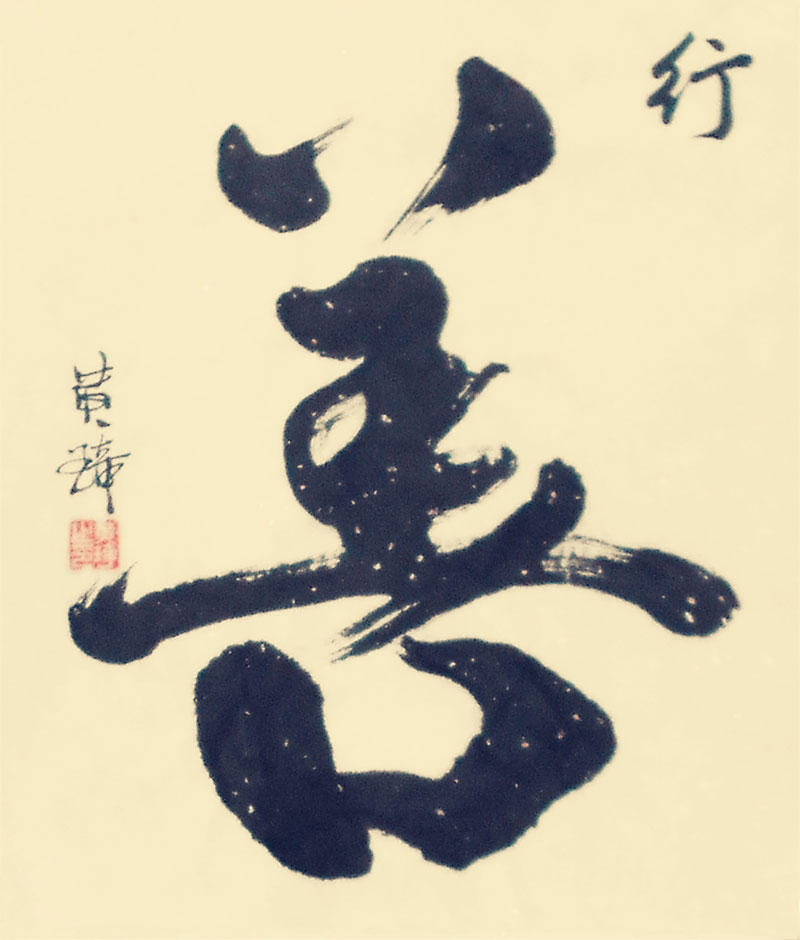 行
善
黄璋